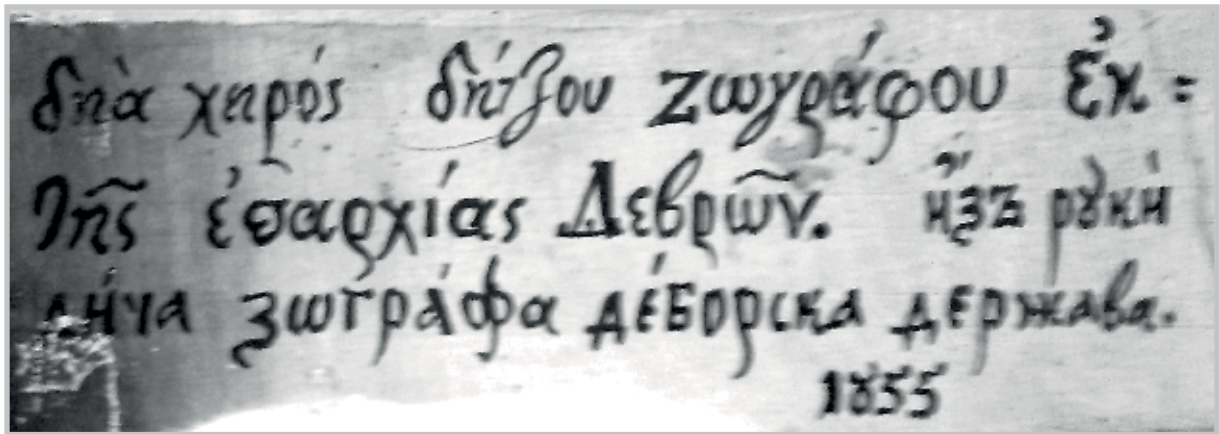 δηὰ χηρός δήτζου ζωγράφου ἐκ =
τῆς ἐπαρχίας Δεβρῶν. ἤζъ рꙋки́
ди́ча зѡгра́фа де́борска держава.
1855